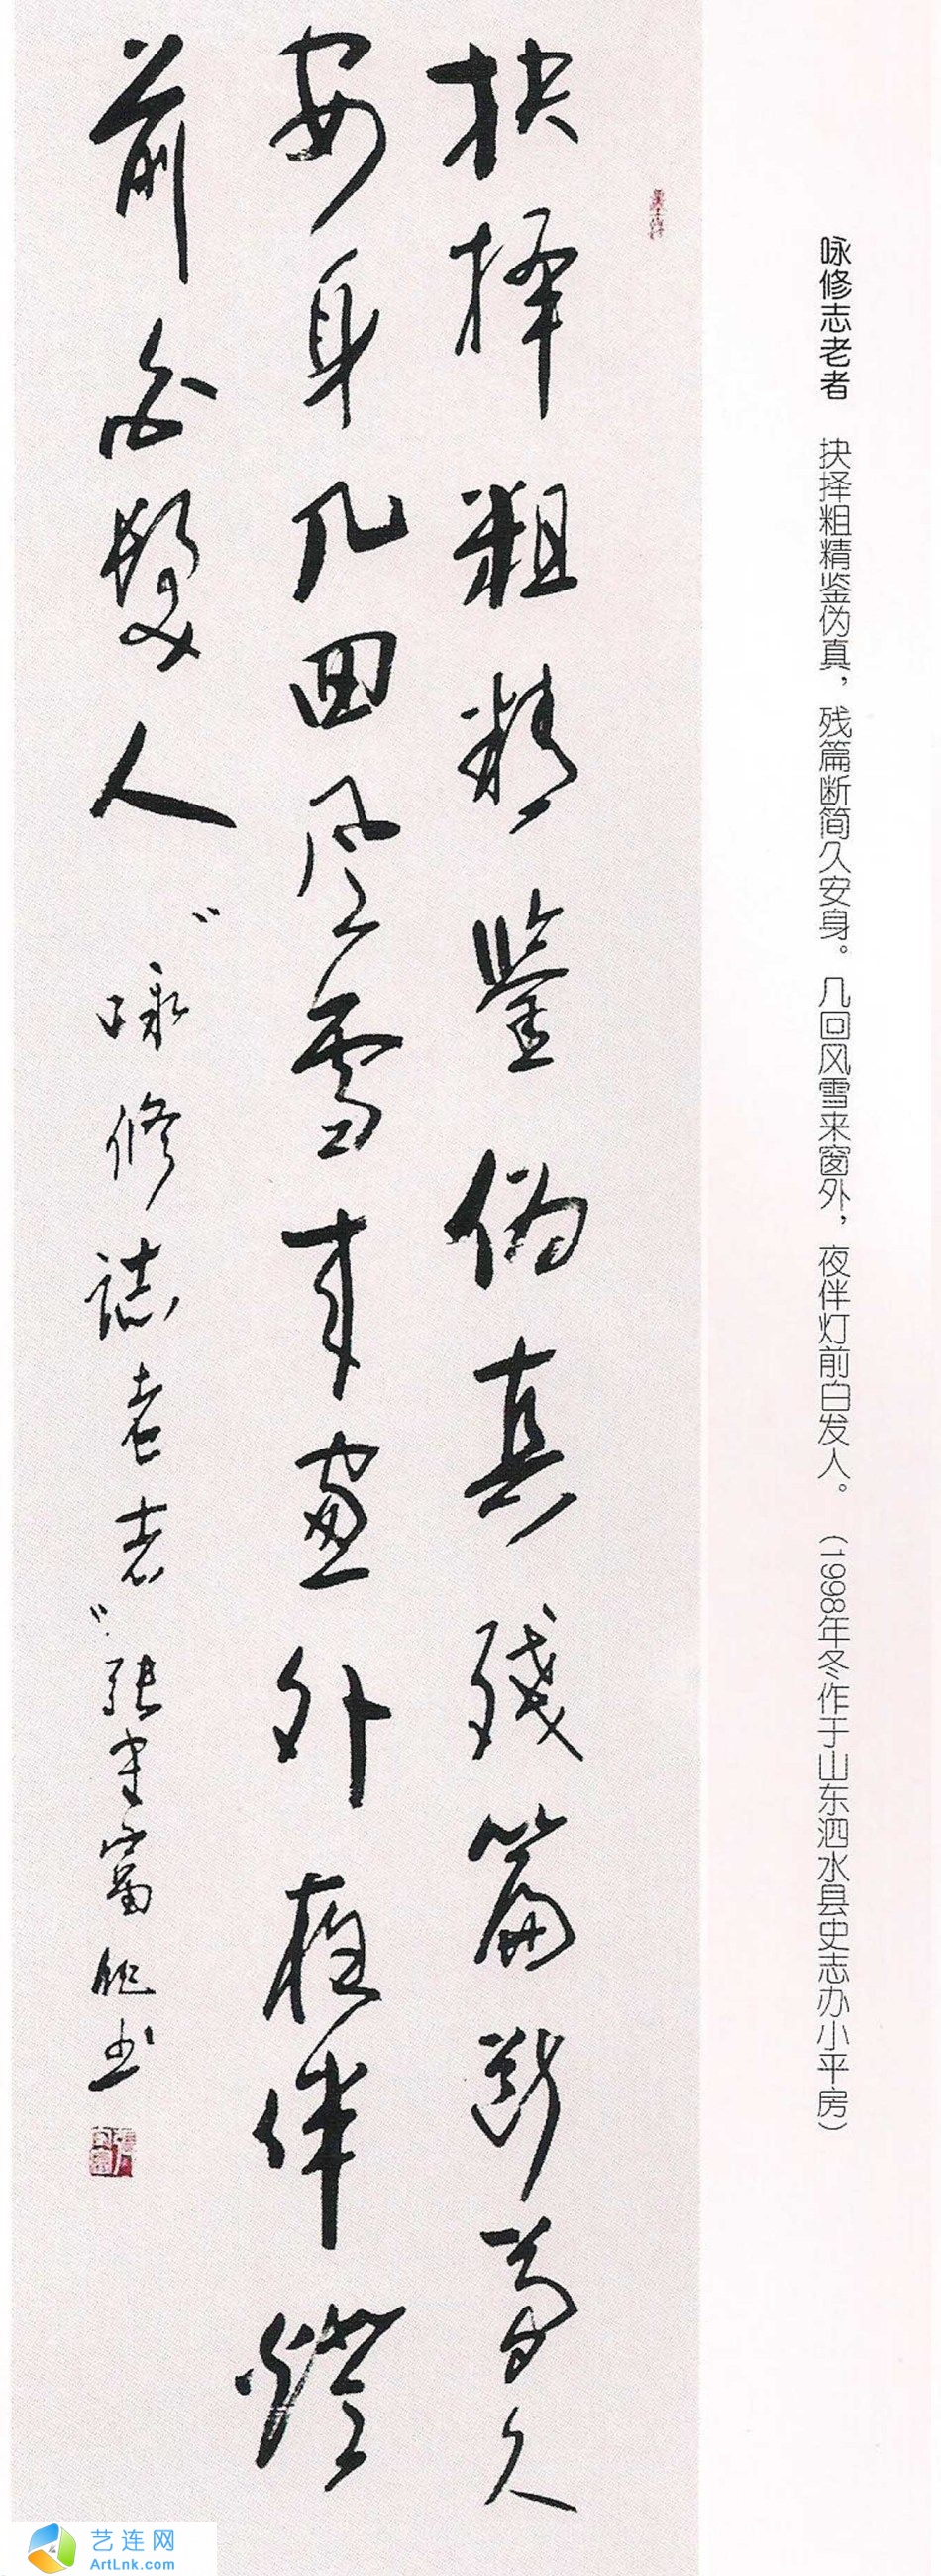 咏修志老者 抉择粗精鉴伪真，残篇断简久安身。几回风雪来窗外，夜伴灯前白发人。（1998年冬作于山东泗水县史志办小平房）
抉择粗精鉴伪真残篇断简久
安身几回风雪来窗外夜伴灯
前白髮人 "咏修誌老者"张
书
艺连网
ArtLnk.com